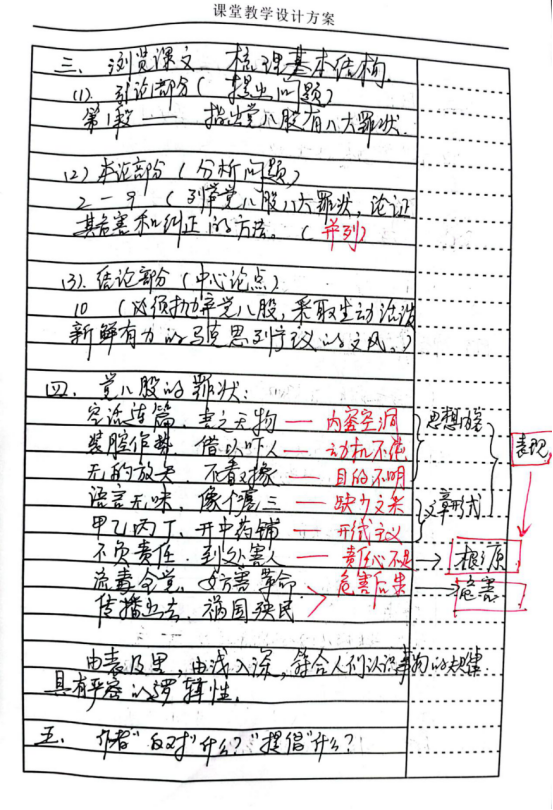 课堂教学设计方案
三、浏览课文 梳理基本结构.
(1) 引论部分(提出问题)
第1段 —— 指出党八股有八大罪状.
(2) 本论部分(分析问题)
2—9 (列举党八股八大罪状, 论证
其危害和纠正的方法。(并列)
(3). 结论部分(中心论点)
10 (必须抛弃党八股,采取生动活泼
新鲜有力的马克思列宁主义的文风。)
四、党八股的罪状:
空话连篇、言之无物 — 内容空洞
装腔作势、借以吓人 — 动机不纯 思想内容
无的放矢、不看对象 — 目的不明 表现
语言无味、像个瘪三 — 缺少文采
甲乙丙丁、开中药铺 — 形式主义 文章形式
不负责任、到处害人 — 责任心不足 → 根源
流毒全党、妨害革命 危害后果 → 危害
传播出去、祸国殃民
由表及里,由浅入深,符合人们认识事物的规律
具有严密的逻辑性.
五、作者"反对"什么?"提倡"什么?